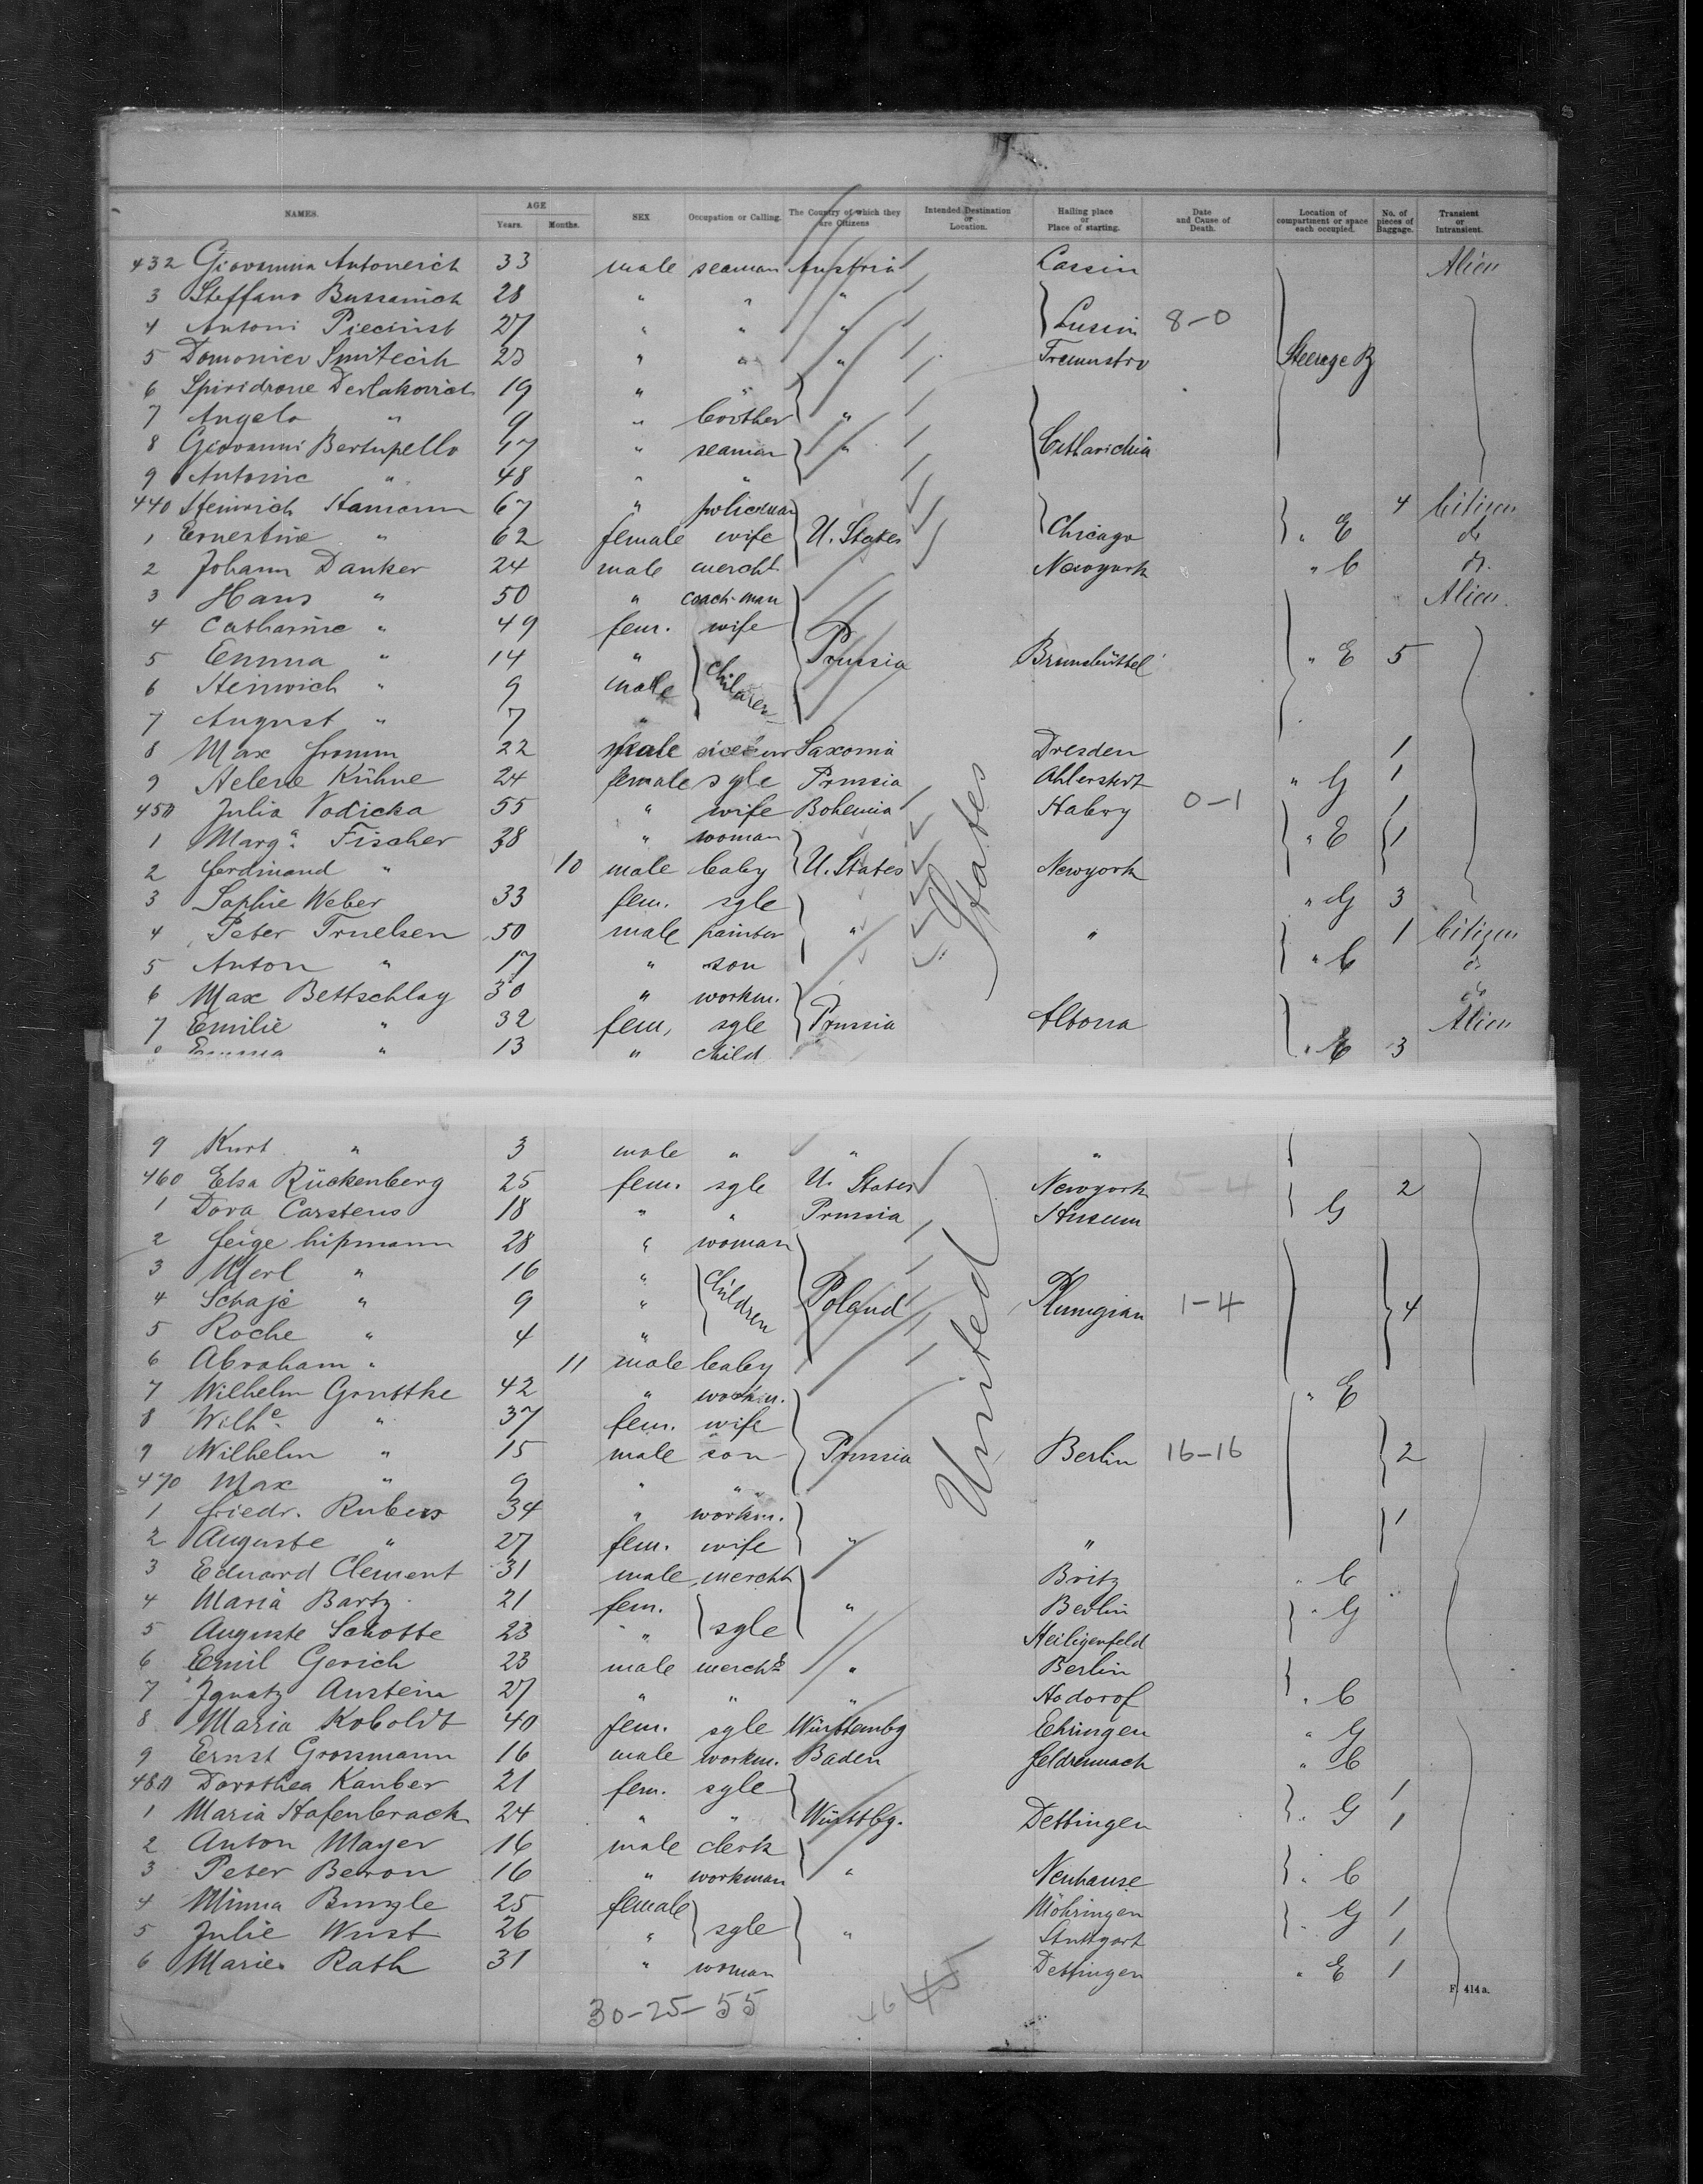 NAMES. AGE SEX Occupation or Calling. The Country of which they are Citizens Intended Destination or Location. Hailing place or Place of starting. Date and Cause of Death. Location of compartment or space each occupied. No. of pieces of Baggage. Transient or Intransient.
Years. Months.
432 Giovannina Antonerich 33 male seaman Austria Cassin Alien
3 Steffano Bussanich 28 " " "
4 Antoni 27 " " " Lussin 8-0
5 Domonico 23 " " " Steerage B
6 Spiridrone 19 " "
7 Angelo " 9 " brother "
8 Giovanni Bertupello 47 " seaman "
9 Antonio " 48 " "
440 Heinrich Hamann 67 " policeman 4 Citizen
1 Ernestine " 62 female wife U. States Chicago " E do
2 Johann Danker 24 male mercht Newyork " C do.
3 Hans " 50 " coach-man Alien.
4 Catharine " 49 fem. wife
5 Emma " 14 " Children Prussia Brunsbüttel " E 5
6 Heinrich " 9 male
7 August " 7 "
8 Max Fromm 22 male Saxonia Dresden 1
9 Helene Kühne 24 female sgle Prussia Ahlerstedt " G 1
450 Julia Vodicka 55 " wife Bohemia Habry 0-1 1
1 Marg.a Fischer 38 " woman " E 1
2 Ferdinand " 10 male baby U. States Newyork
3 Sophie Weber 33 fem. sgle " G 3
4 Peter Truelsen 50 male painter " " 1 Citizen
5 Anton " 17 " son " C do
6 Max Bettschlag 30 " workm. do
7 Emilie " 32 fem. sgle Prussia Altona Alien
8 Emma " 13 " child " E 3
9 Kurt " 3 male " " "
460 Elsa Rückenberg 25 fem. sgle U. States Newyork 5-4 2
1 Dora Carstens 18 " " Prussia Husum G
2 Feige Lipmann 28 " woman
3 Merl " 16 " Children
4 Schaje " 9 " Poland Plumgian 1-4 4
5 Roche " 4 "
6 Abraham " 11 male baby
7 Wilhelm Gruttke 42 " workm. " E
8 Wilhe " 37 fem. wife
9 Wilhelm " 15 male son Prussia Berlin 16-16 2
470 Max " 9 " "
1 Friedr. Rubens 34 " workm. 1
2 Auguste " 27 fem. wife " "
3 Eduard Clement 31 male mercht Britz " C
4 Maria Bartz 21 fem. sgle " Berlin " G
5 Auguste Schotte 23 " Heiligenfeld
6 Emil Gerich 23 male mercht " Berlin
7 Ignatz Austein 27 " " " Hodorof " C
8 Maria Koboldt 40 fem. sgle Württembg Ehringen " G
9 Ernst Grossmann 16 male workm. Baden Feldrennach " C
480 Dorothea Kanber 21 fem. sgle 1
1 Maria Hafenbrack 24 " " Württbg. Dettingen " G 1
2 Anton Mayer 16 male clerk
3 Peter Beron 16 " workman " Neuhause " C
4 Minna Bungle 25 female sgle Möhringen " G 1
5 Julie Wust 26 " " Stuttgart 1
6 Marie Rath 31 " woman Dettingen " E 1
United States
30-25-55
F. 414 a.